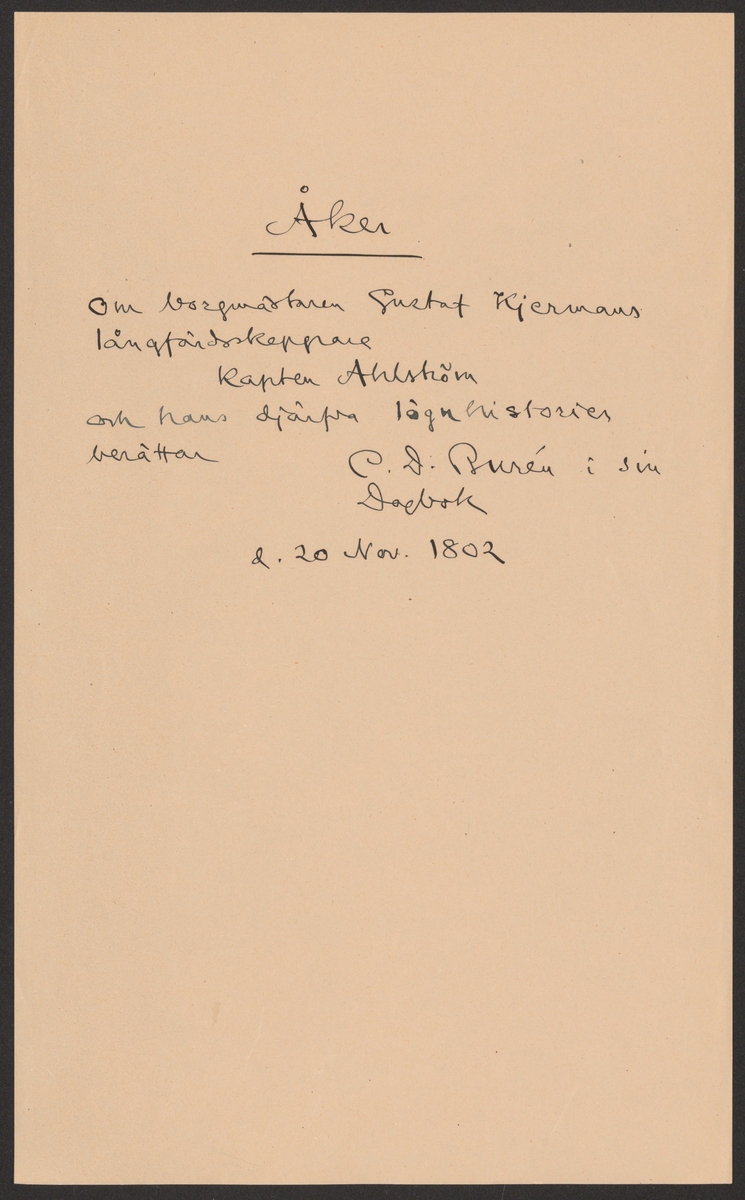 Åker
Om borgmästaren Gustaf Kjermans
långfärdsskeppare
Kapten Ahlström
och hans djärfva lögnhistorier
berättar C. D. Burén i sin
Dagbok
d. 20 Nov. 1802